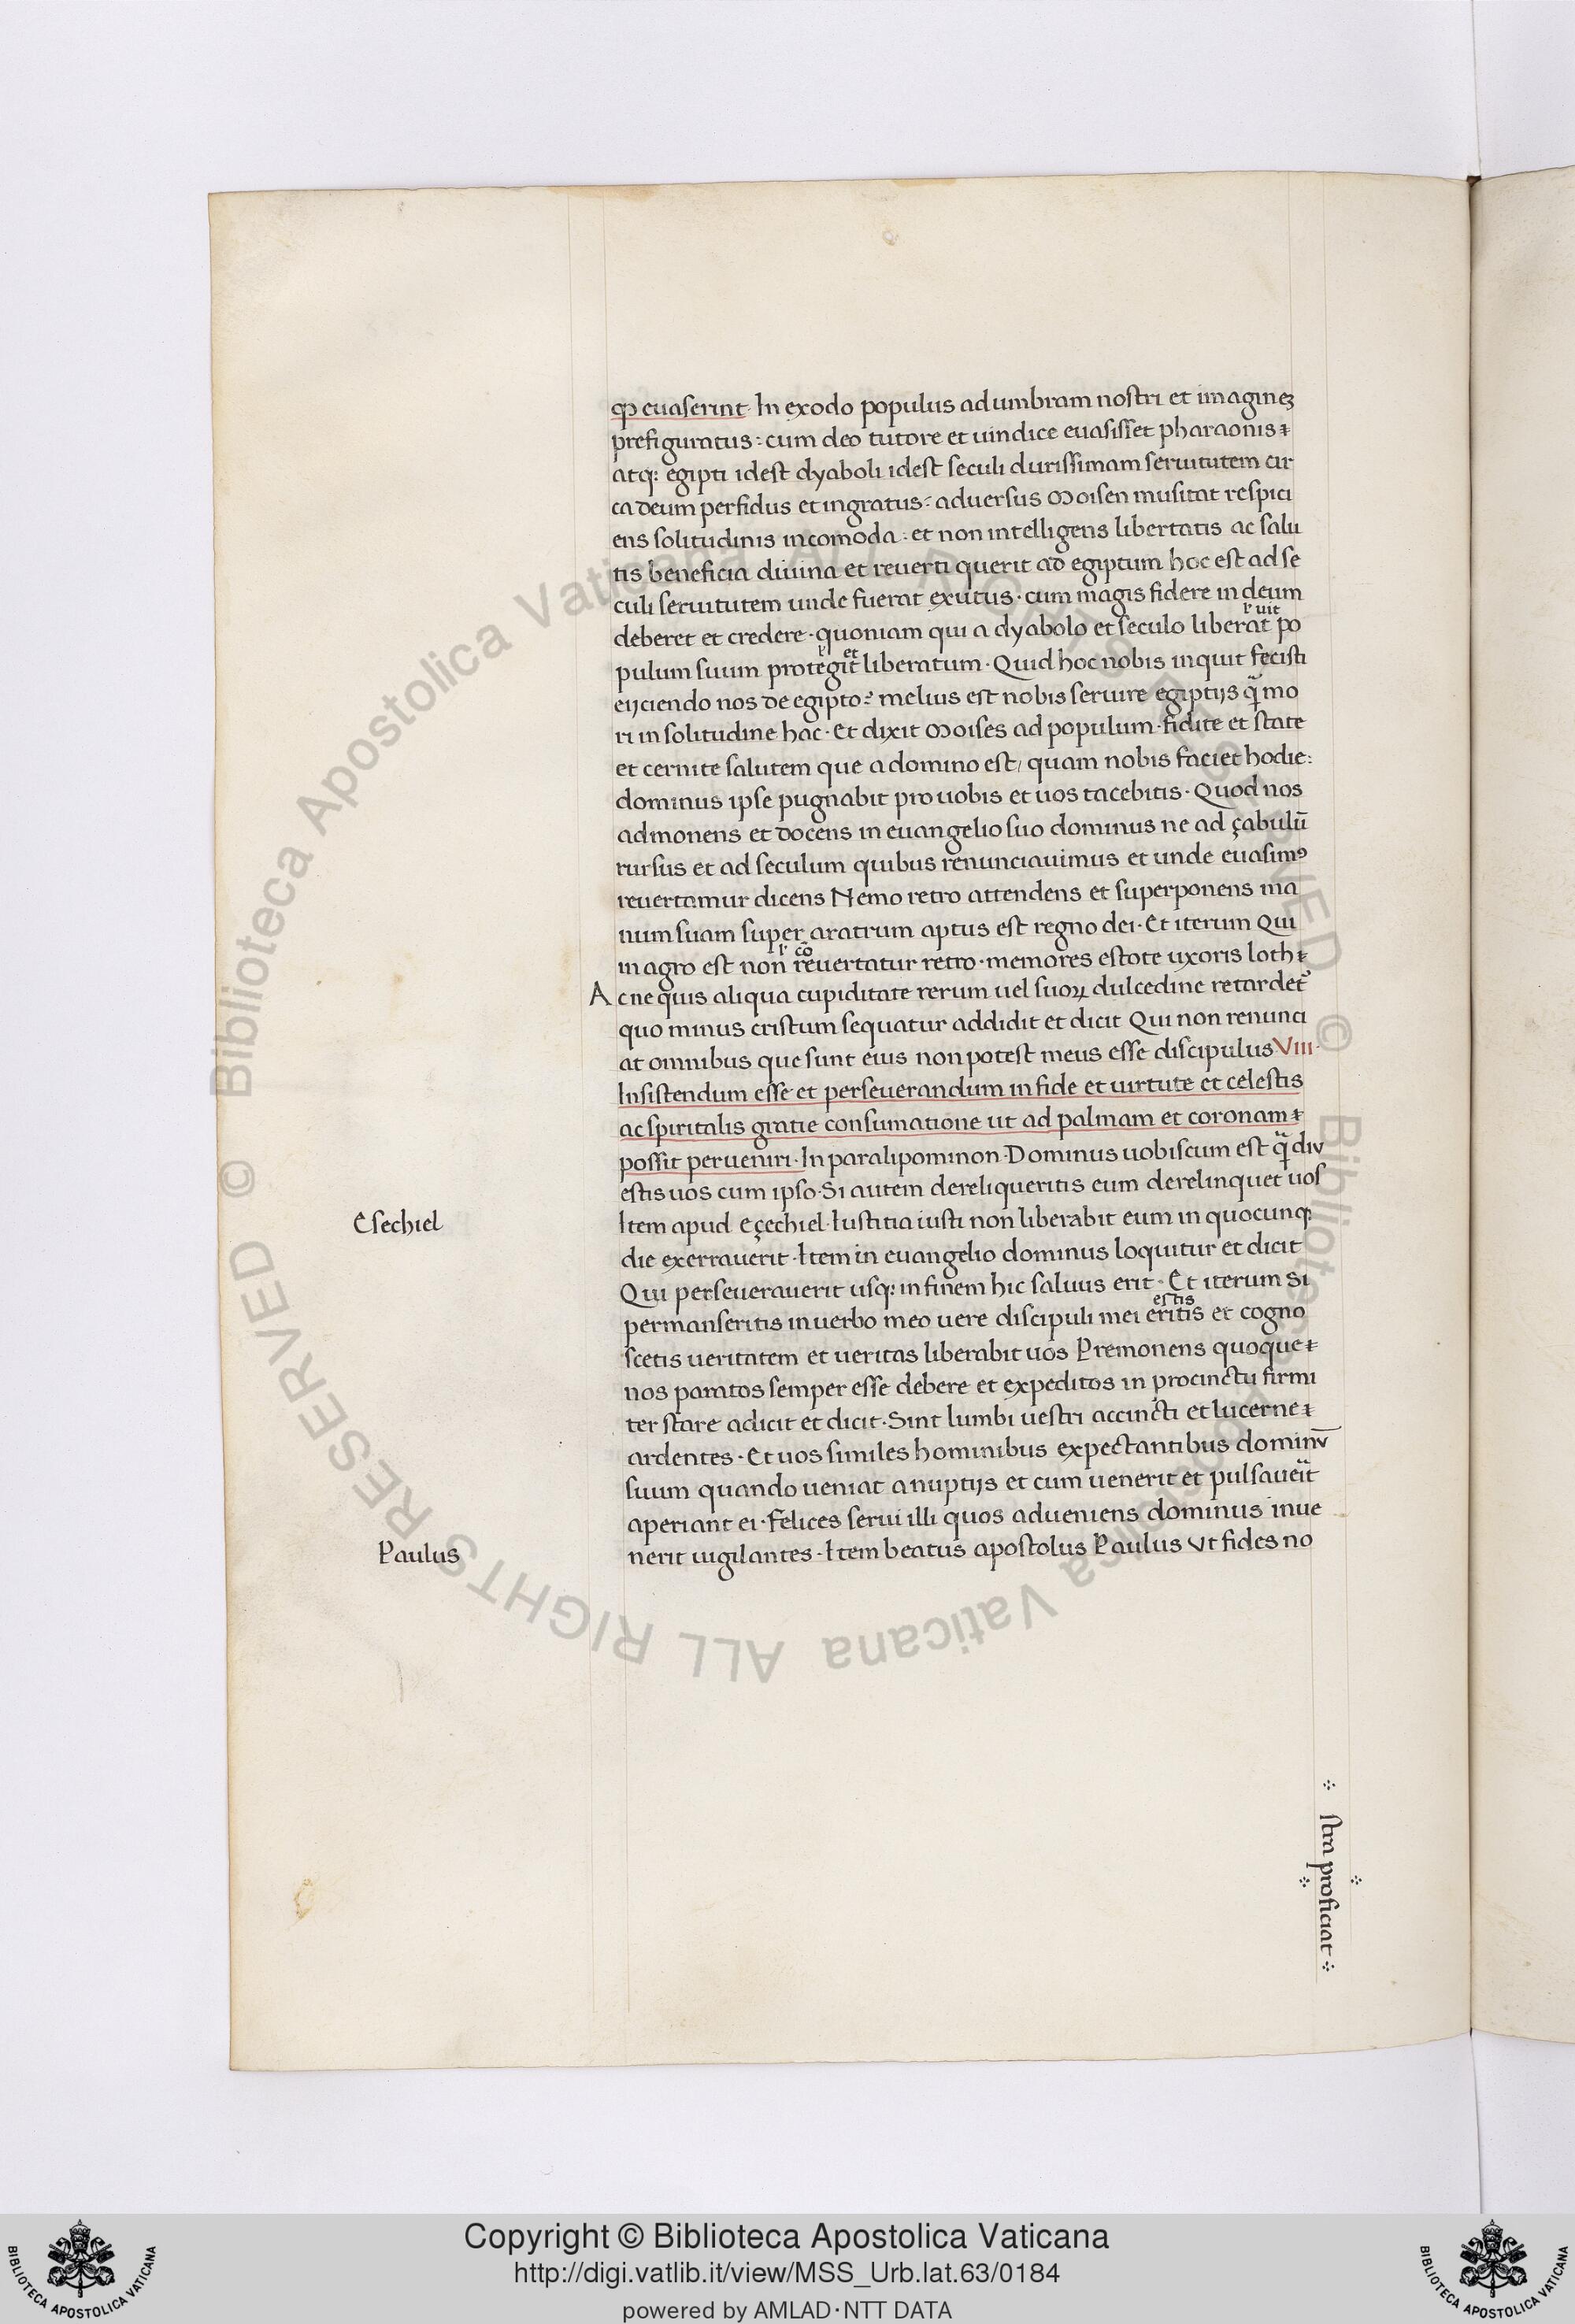 ꝙ euaserint· In exodo populus ad umbram nostri et imagineꝫ
prefiguratus: cum deo tutore et uindice euasisset pharaonis
atq: egipti idest dyaboli idest seculi durissimam seruitutem cir
ca deum perfidus et ingratus: aduersus Moisen musitat respici
ens solitudinis incomoda: et non intelligens libertatis ac salu
tis beneficia diuina et reuerti querit ad egiptum hoc est ad se
culi seruitutem unde fuerat exutus· cum magis fidere in deum
l' uit
deberet et credere· quoniam qui a dyabolo et seculo liberat po
l' et
pulum suum protegit liberatum· Quid hoc nobis inquit fecisti
eijciendo nos de egipto? melius est nobis seruire egiptijs q̃ mo
ri in solitudine hac· Et dixit Moises ad populum· fidite et state
et cernite salutem que a domino est/ quam nobis faciet hodie:
dominus ipse pugnabit pro uobis et uos tacebitis· Quod nos
admonens et docens in euangelio suo dominus ne ad çabulũ
rursus et ad seculum quibus renunciauimus et unde euasimꝰ
reuertamur dicens Nemo retro attendens et superponens ma
num suam super aratrum aptus est regno dei· Et iterum Qui
l' cõ
in agro est non reuertatur retro· memores estote uxoris loth
Ac ne quis aliqua cupiditate rerum uel suoꝝ dulcedine retardet᾽
quo minus cristum sequatur addidit et dicit Qui non renunci
at omnibus que sunt eius non potest meus esse discipulus VIII·
Insistendum esse et perseuerandum in fide et uirtute et celestis
ac spiritalis gratie consumatione ut ad palmam et coronam
possit perueniri· In paralipominon· Dominus uobiscum est q̃diu
estis uos cum ipso· Si autem dereliqueritis eum derelinquet uos
Esechiel
Item apud Eçechiel· Iustitia iusti non liberabit eum in quocunq:
die exerrauerit· Item in euangelio dominus loquitur et dicit
Qui perseuerauerit usq: in finem hic saluus erit· Et iterum Si
estis
permanseritis in uerbo meo uere discipuli mei eritis et cogno
scetis ueritatem et ueritas liberabit uos Premonens quoque
nos paratos semper esse debere et expeditos in procinctu firmi
ter stare adicit et dicit· Sint lumbi uestri accincti et lucerne
ardentes· Et uos similes hominibus expectantibus dominū
suum quando ueniat a nuptijs et cum uenerit et pulsaue͛it
aperiant ei· Felices serui illi quos adueniens dominus inue
Paulus
nerit uigilantes· Item beatus apostolus Paulus Ut fides no
stra proficiat
Copyright © Biblioteca Apostolica Vaticana
http://digi.vatlib.it/view/MSS_Urb.lat.63/0184
powered by AMLAD·NTT DATA
BIBLIOTECA APOSTOLICA VATICANA
BIBLIOTECA APOSTOLICA VATICANA
© Biblioteca Apostolica Vaticana ALL RIGHTS RESERVED
© Biblioteca Apostolica Vaticana ALL RIGHTS RESERVED